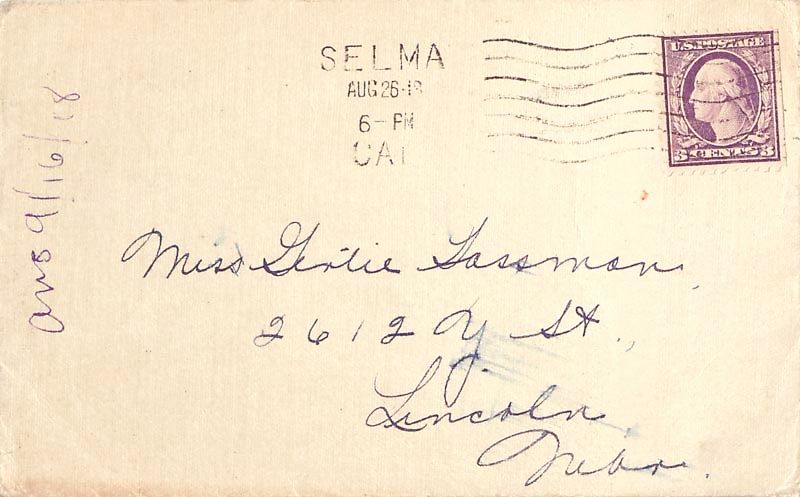 SELMA
AUG 26-18
6-PM
CAL
U.S. POSTAGE
3 CENTS 3
ans 9/16/18
Miss Gertie Gassman
2612 Y St.,
Lincoln
Nebr.